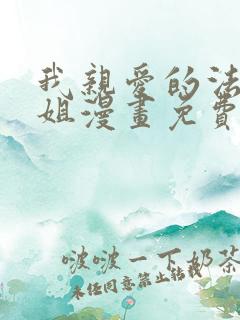 我親愛的法
姐漫畫免費
啵啵一下奶茶
未經同意禁止轉載